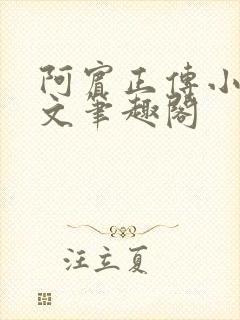 阿賓正傳小
文筆趣閣
汪立夏